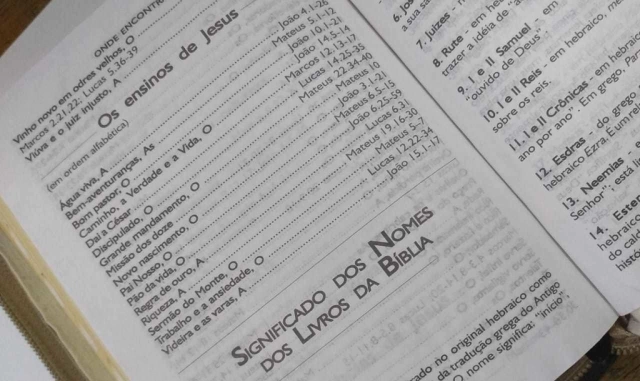 ONDE ENCONTR
Vinho novo em odres velhos, O
Marcos 2.21,22; Lucas 5.36-39
Viúva e o juiz injusto, A
Os ensinos de Jesus
(em ordem alfabética)
Água viva, A João 4.1-26
Bem-aventuranças, As Mateus 5.1-12
Bom pastor, O João 10.1-21
Caminho, a Verdade e a Vida, O João 14.5-14
Dai a César Marcos 12.13-17
Discipulado, O Lucas 14.25-35
Grande mandamento, O Mateus 22.34-40
Missão dos doze Mateus 10
Novo nascimento, O João 3.1-21
Pai Nosso, O Mateus 6.5-15
Pão da vida, O João 6.25-59
Regra de ouro, A Lucas 6.31
Riqueza, A Mateus 19.16-30
Sermão do Monte, O Mateus 5-7
Trabalho e a ansiedade, O Lucas 12.22-34
Videira e as varas, A João 15.1-17
SIGNIFICADO DOS NOMES
DOS LIVROS DA BÍBLIA
no original hebraico como
da tradução grega do Antigo
O nome significa: "início".
6. Jos
a sua
7. Juízes - em
trazer a idéia de
8. Rute - em he
9. I e II Samuel - em
"ouvido de Deus"
10. I e II Reis - em hebraico, me
sobre os reis.
11. I e II Crônicas - em hebraic
ano por ano". Em grego, Par
12. Esdras - do grego
hebraico Ezra. É um
13. Neemias - e
Senhor"; está
14. Ester
hebraic
do caíd
histó